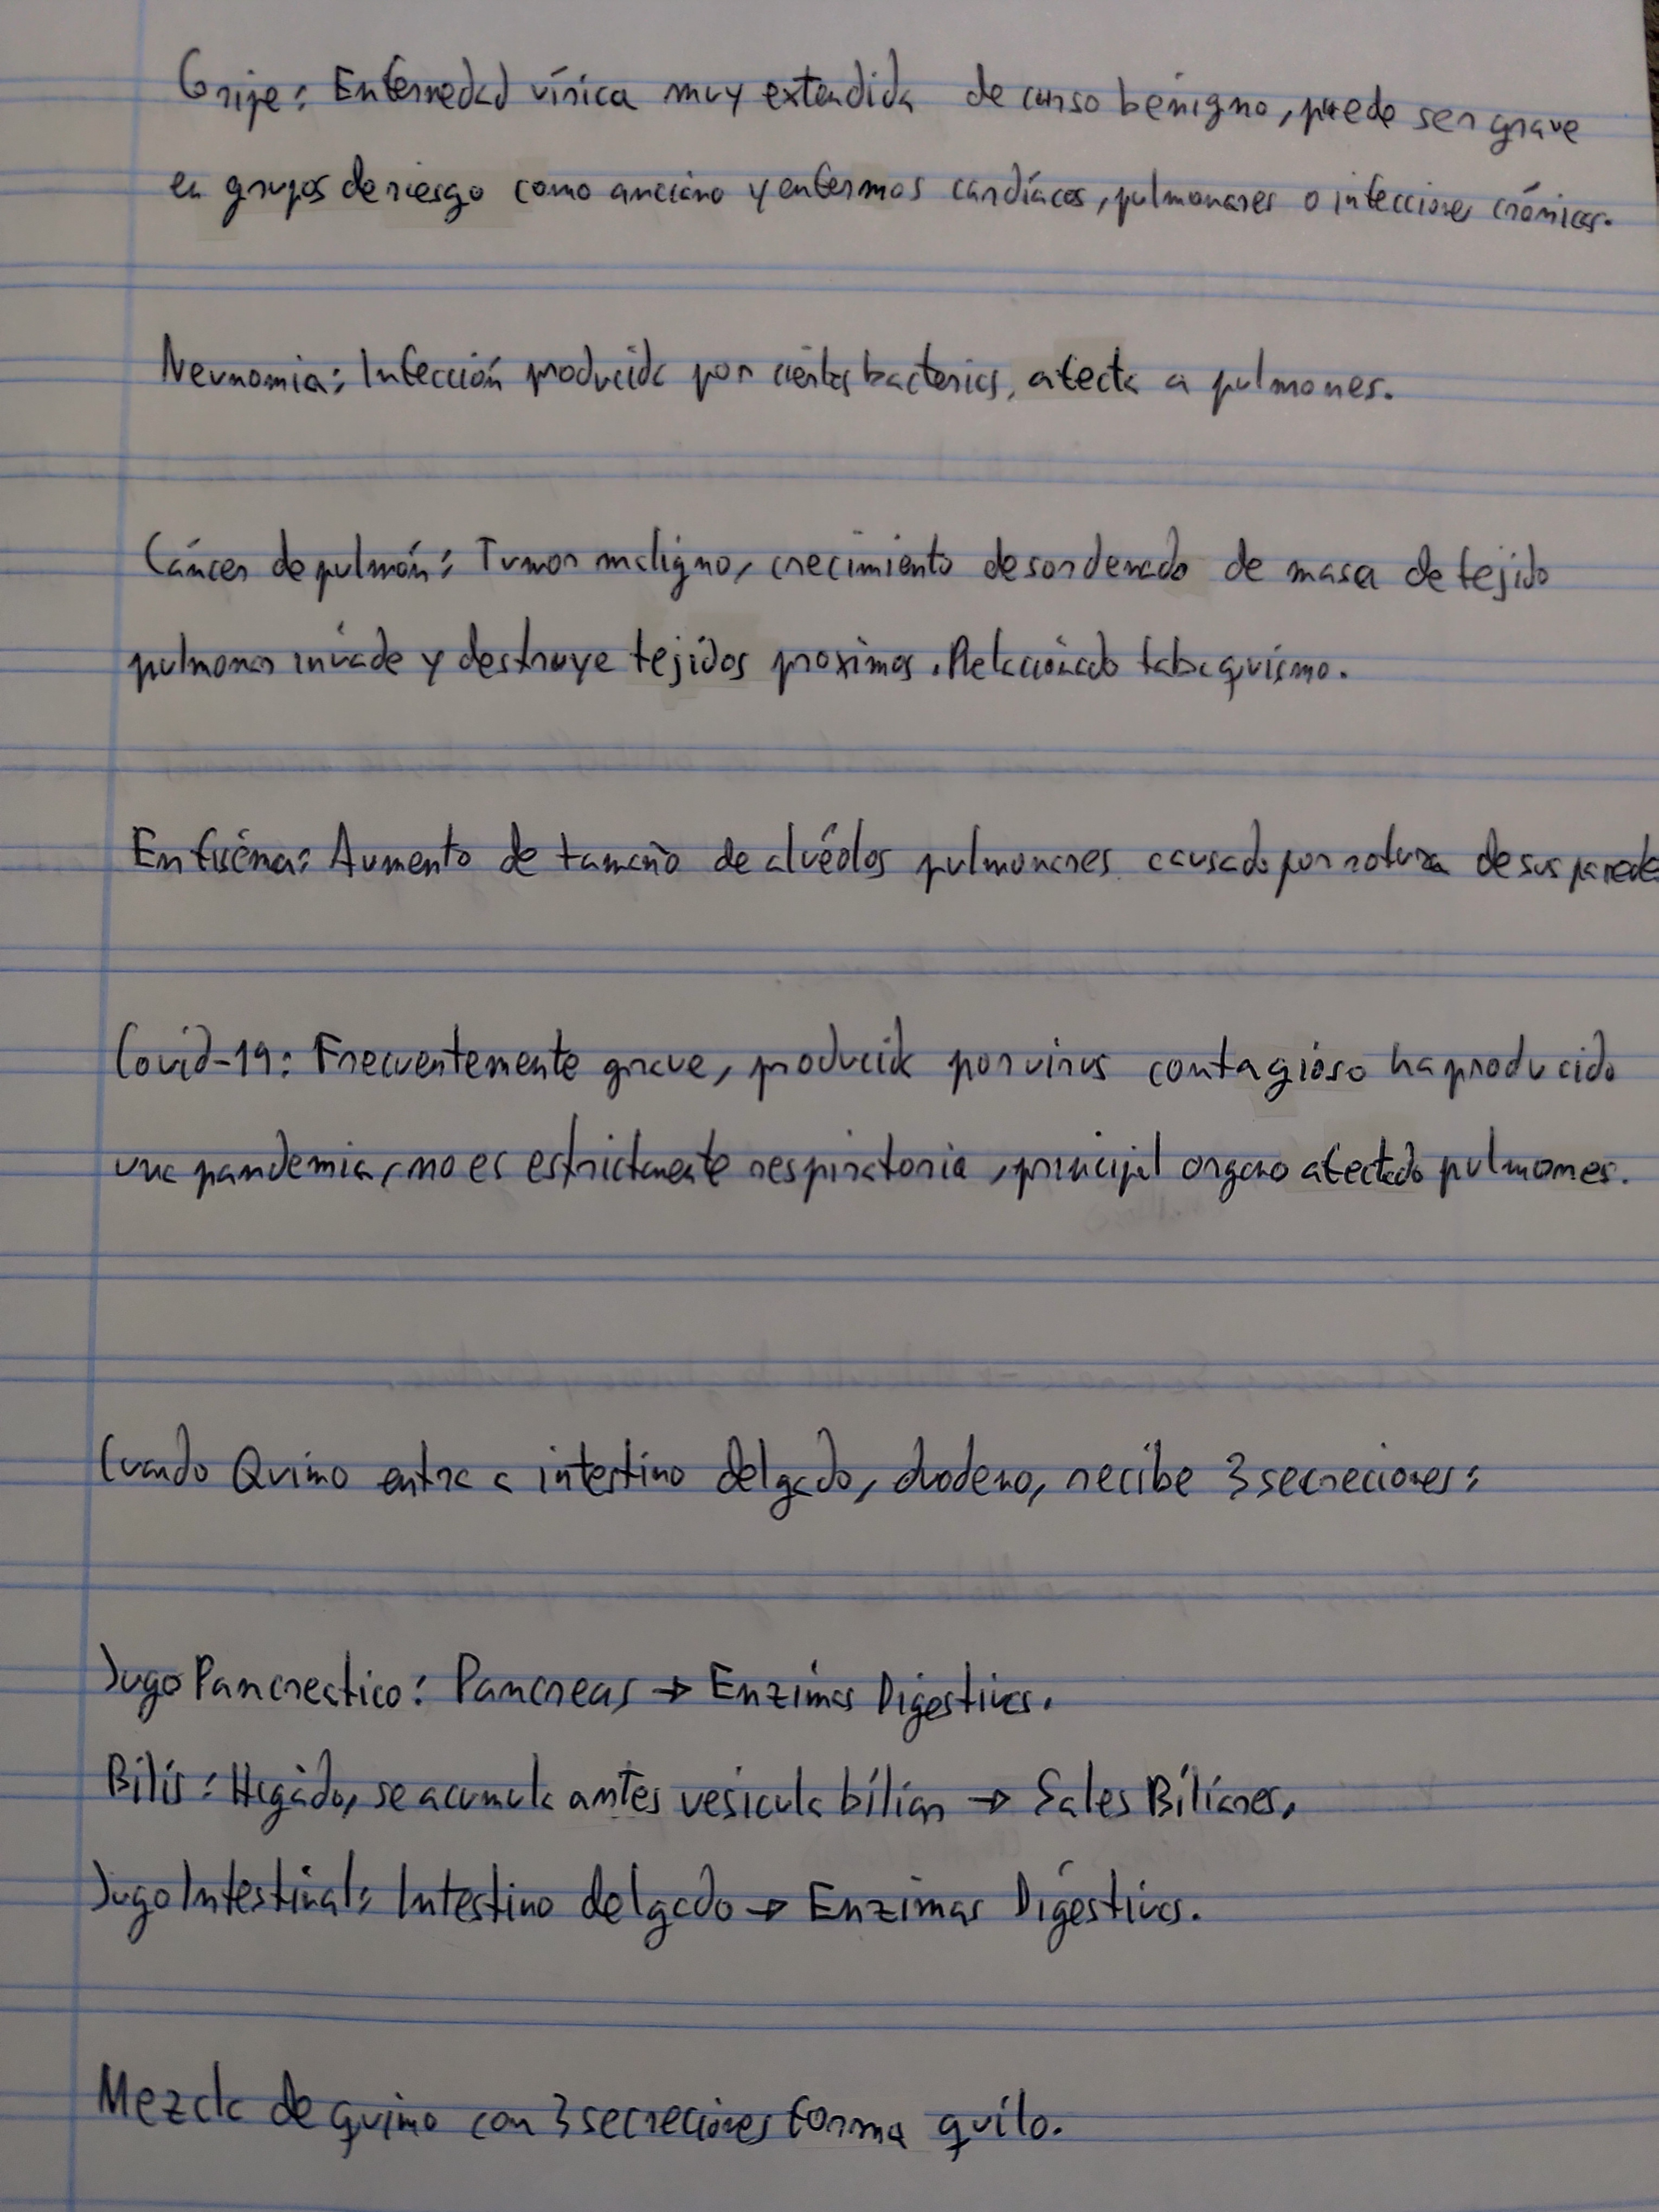 Gripe: Enfermedad vírica muy extendida de curso benigno, puede ser grave
en grupos de riesgo como anciano y enfermos cardíacos, pulmonares o infecciones crónicas.
Neunomia: Infección producida por ciertas bacterias, afecta a pulmones.
Cáncer de pulmón: Tumor maligno, crecimiento desordenado de masa de tejido
pulmonar invade y destruye tejidos proximos. Relacionado tabaquismo.
Enfisema: Aumento de tamaño de alvéolos pulmonares causado por rotura de sus parede
Covid-19: Frecuentemente grave, producida por virus contagioso ha producido
una pandemia, no es estrictamente respiratoria, principal organo afectado pulmones.
Cuando Quimo entra a intestino delgado, duodeno, recibe 3 secreciones:
Jugo Pancreatico: Pancreas → Enzimas Digestivas.
Bilis: Higado, se acumula antes vesicula biliar → Sales Biliares.
Jugo Intestinal: Intestino delgado → Enzimas Digestivas.
Mezcla de quimo con 3 secreciones forma quilo.